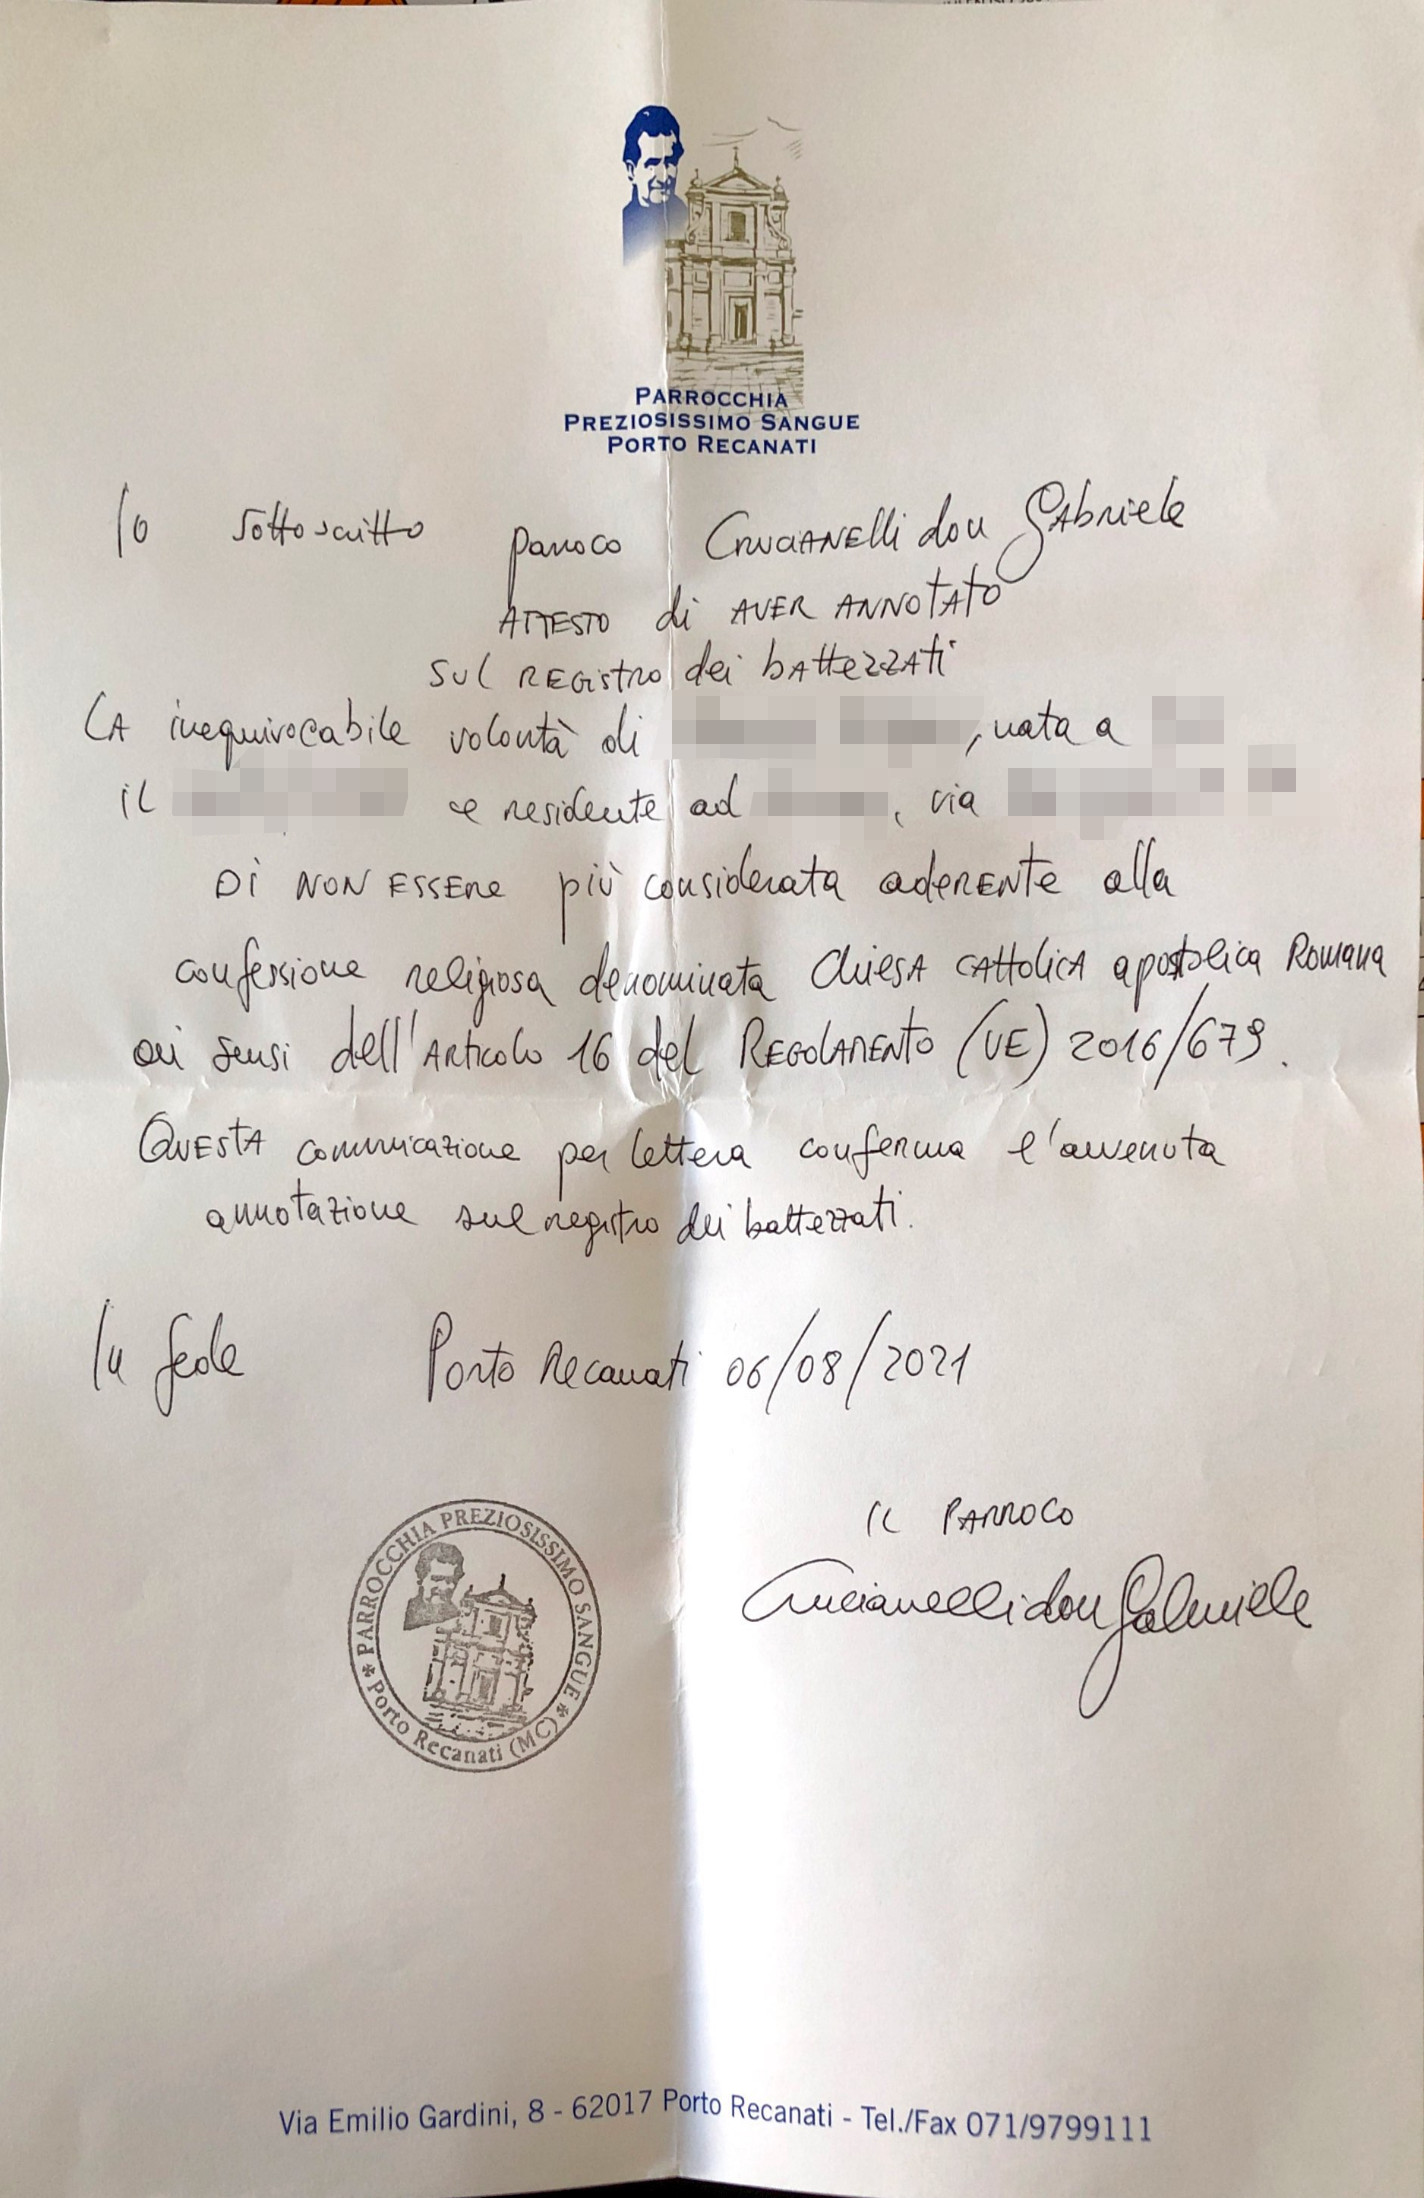 PARROCCHIA
PREZIOSISSIMO SANGUE
PORTO RECANATI
Io sottoscritto parroco CRUCIANELLI don GABRIELE
ATTESTO di AVER ANNOTATO
SUL REGISTRO dei BATTEZZATI
LA inequivocabile volontà di , nata a
il e residente ad , via
DI NON ESSERE più considerata aderente alla
confessione religiosa denominata Chiesa CATTOLICA apostolica Romana
ai sensi dell'Articolo 16 del REGOLAMENTO (UE) 2016/679.
QUESTA comunicazione per lettera conferma l'avvenuta
annotazione sul registro dei battezzati.
In fede Porto Recanati 06/08/2021
IL PARROCO
Crucianelli don Gabriele
PARROCCHIA PREZIOSISSIMO SANGUE
Porto Recanati (MC)
Via Emilio Gardini, 8 - 62017 Porto Recanati - Tel./Fax 071/9799111